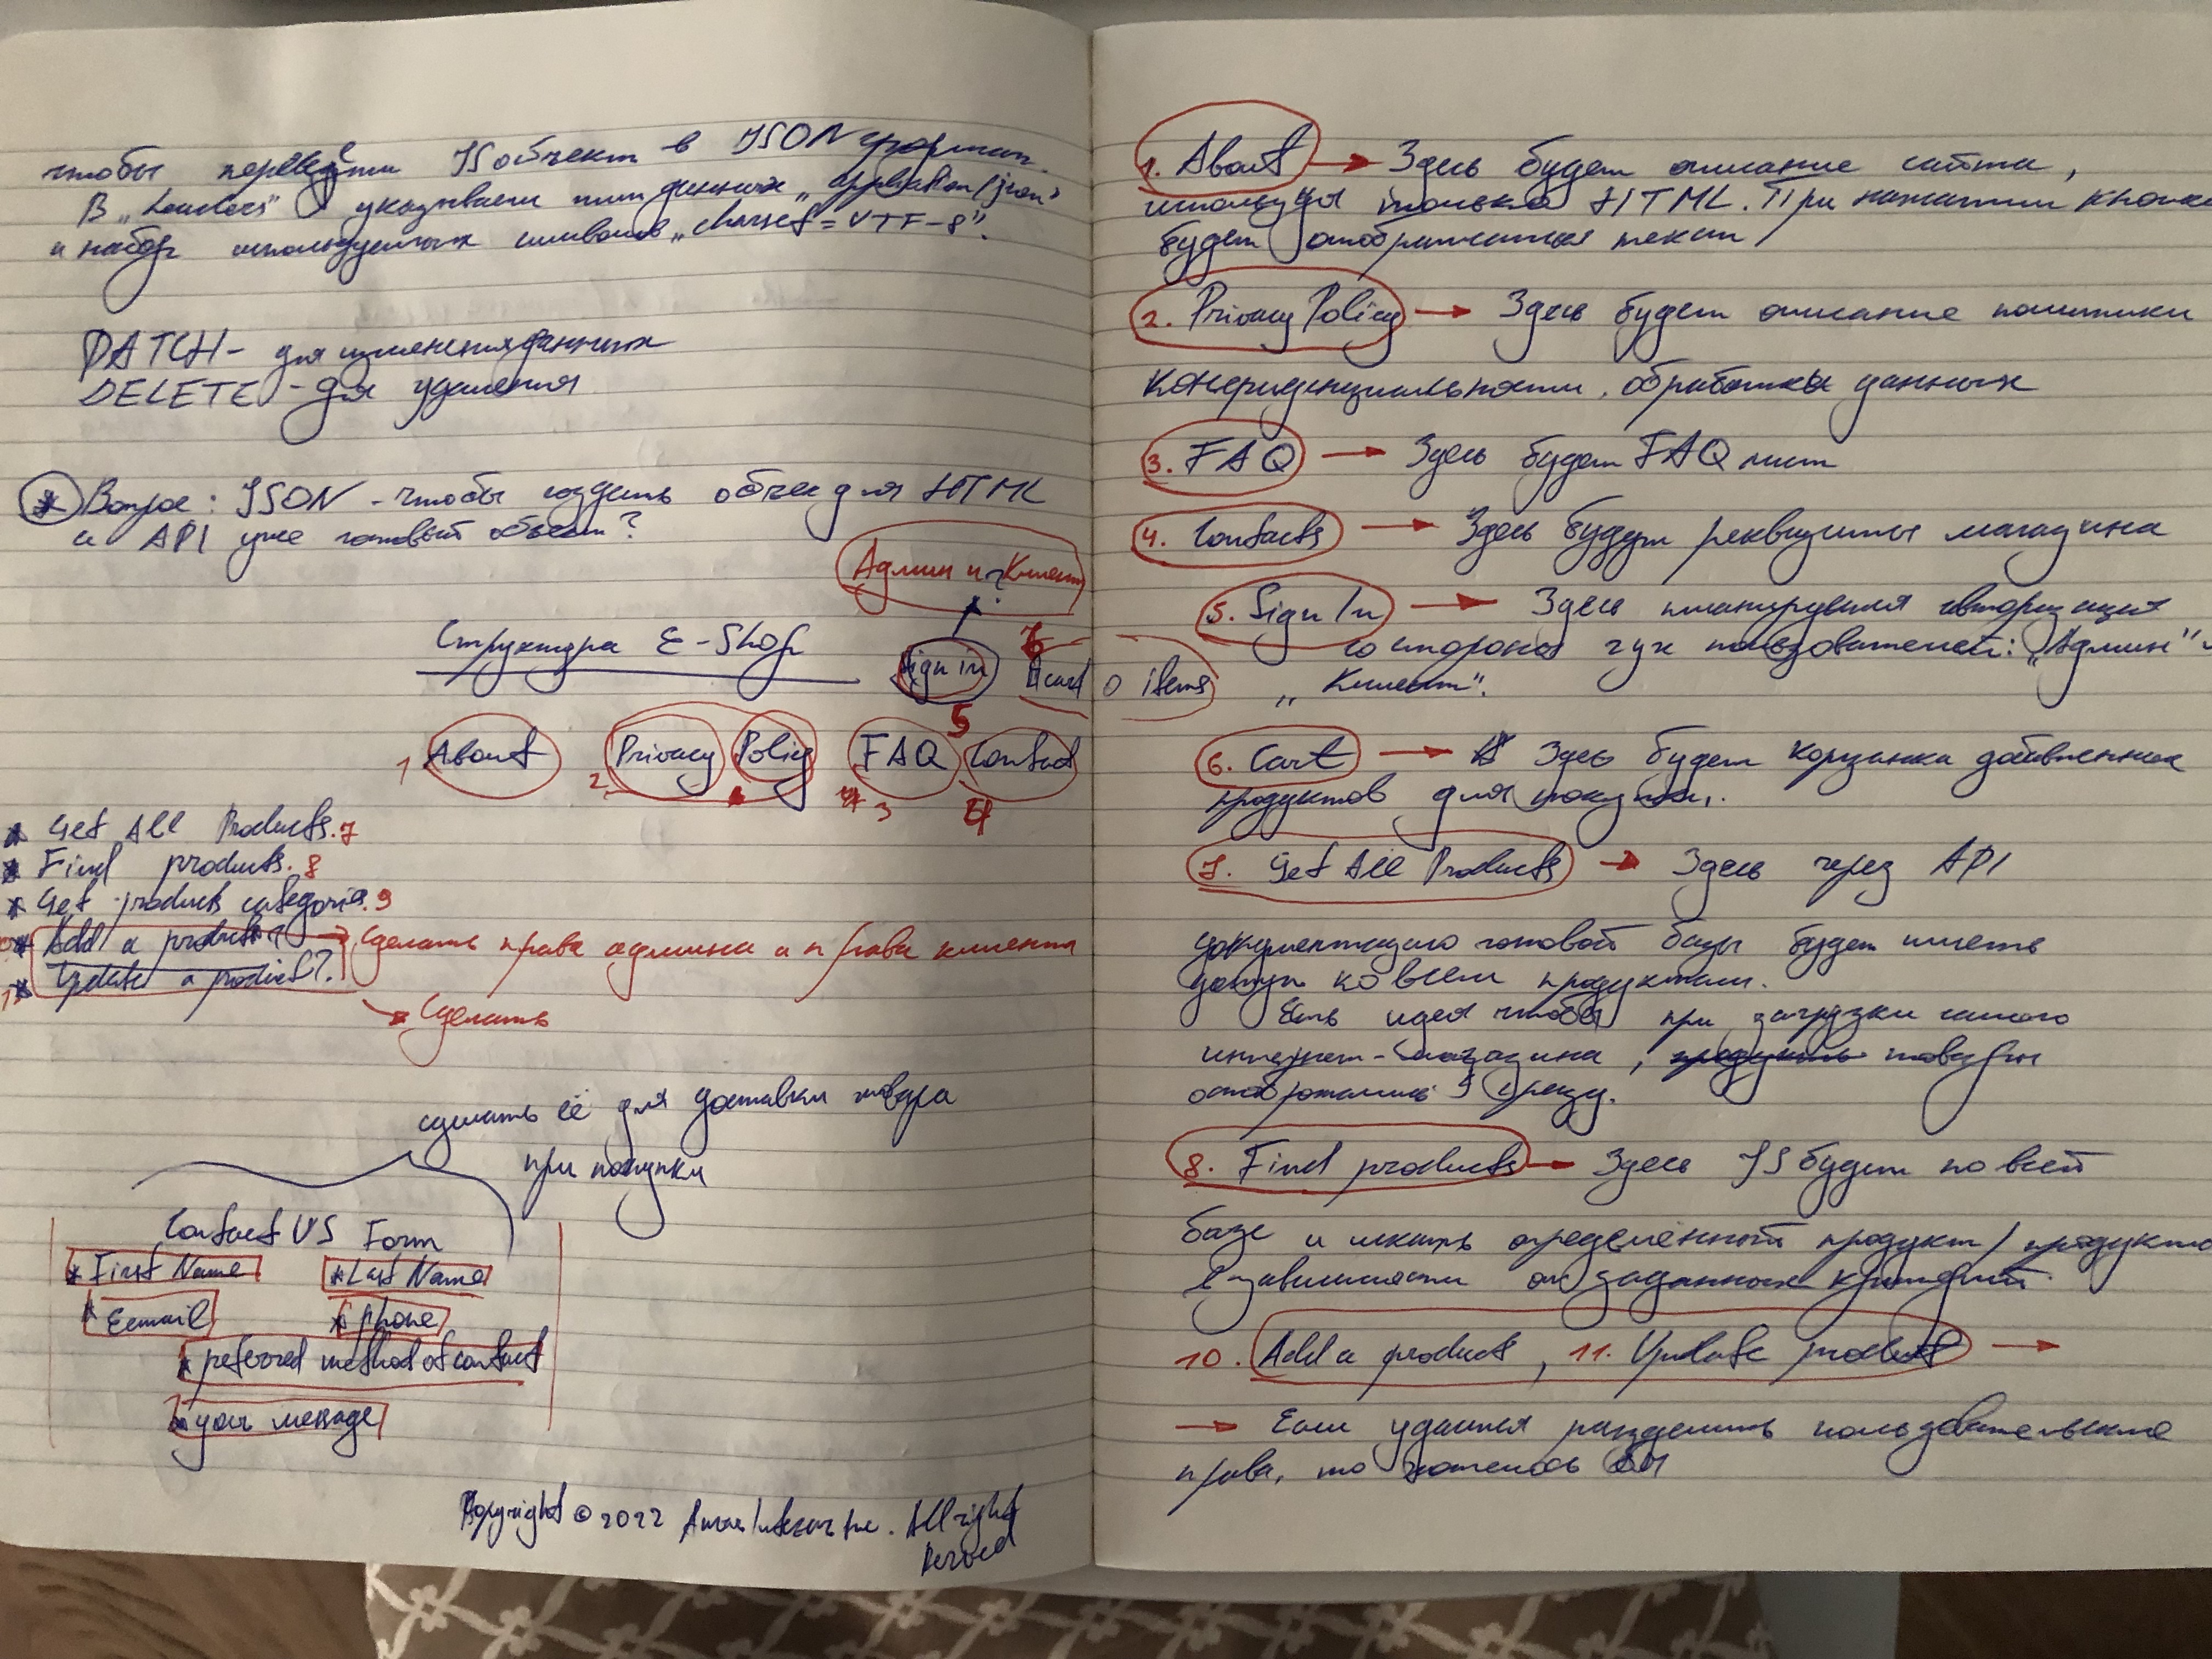 чтобы перевести JS объект в JSON формат.
В „headers" указываем тип данных „application/json"
и набор используемых символов „charset = UTF-8".
PATCH - для изменения данных
DELETE - для удаления
* Вопрос: JSON - чтобы создать объек для HTML
и API уже готовый объект?
Админ и Клиент
?
Структура E-Shop
Sign in
5
6
cart 0 items
1 About
2. Privacy Policy
FAQ
3
Contact
4
* Get All Products. 7
* Find products. 8
* Get products categories. 9
* Add a product? → Сделать права админа и права клиента
* Update a product?.
→ Сделать
сделать её для доставки товара
при покупки
Contact US Form
* First Name * Last Name
* Eemail * phone
* preferred method of contact
* your message
Copyright © 2022 All right
1. About → Здесь будет описание сайта,
используя только HTML. При нажатии кнопка
будет отображаться текст
2. Privacy Policy → Здесь будет описание политики
конфиденциальности, обработка данных
3. FAQ → Здесь будет FAQ лист
4. Contacts → Здесь будут реквизиты магазина
5. Sign In → Здесь планируется авторизация
со стороны двух пользователей: „Админ" и
„Клиент".
6. Cart → Здесь будет корзинка добавленных
продуктов для покупки.
7. Get All Products → Здесь через API
документацию готовой базы будет иметь
доступ ко всем продуктам.
Есть идея чтобы при загрузки самого
интернет-магазина, продукты товары
отображались сразу.
8. Find products → Здесь JS будет по всей
базе искать определённый продукт/продукто
в зависимости от заданных критерий.
10. Add a product, 11. Update product →
→ Если удастся разделить пользовательские
права, то хотелось бы